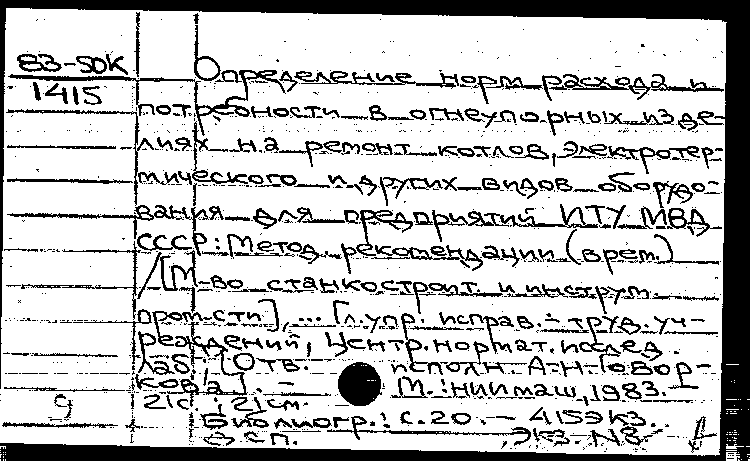 83-50К
1415
Определение норм расхода и
потребности в огнеупорных изде-
лиях на ремонт котлов, электротер-
мического и других видов оборудо-
вания для предприятий ИТУ МВД
СССР: Метод. рекомендации (врем.)
/[М-во станкостроит. и инструм.
пром-сти], ... Гл. упр. исправ.-труд. уч-
реждений, Центр. нормат. исслед.
лаб.; [Отв. исполн. А.Н. Говор-
кова]. - М.: НИИмаш, 1983. -
21 с.; 21 см.
Библиогр.: с. 20. - 415 экз.
9
В сп. , экз. №8